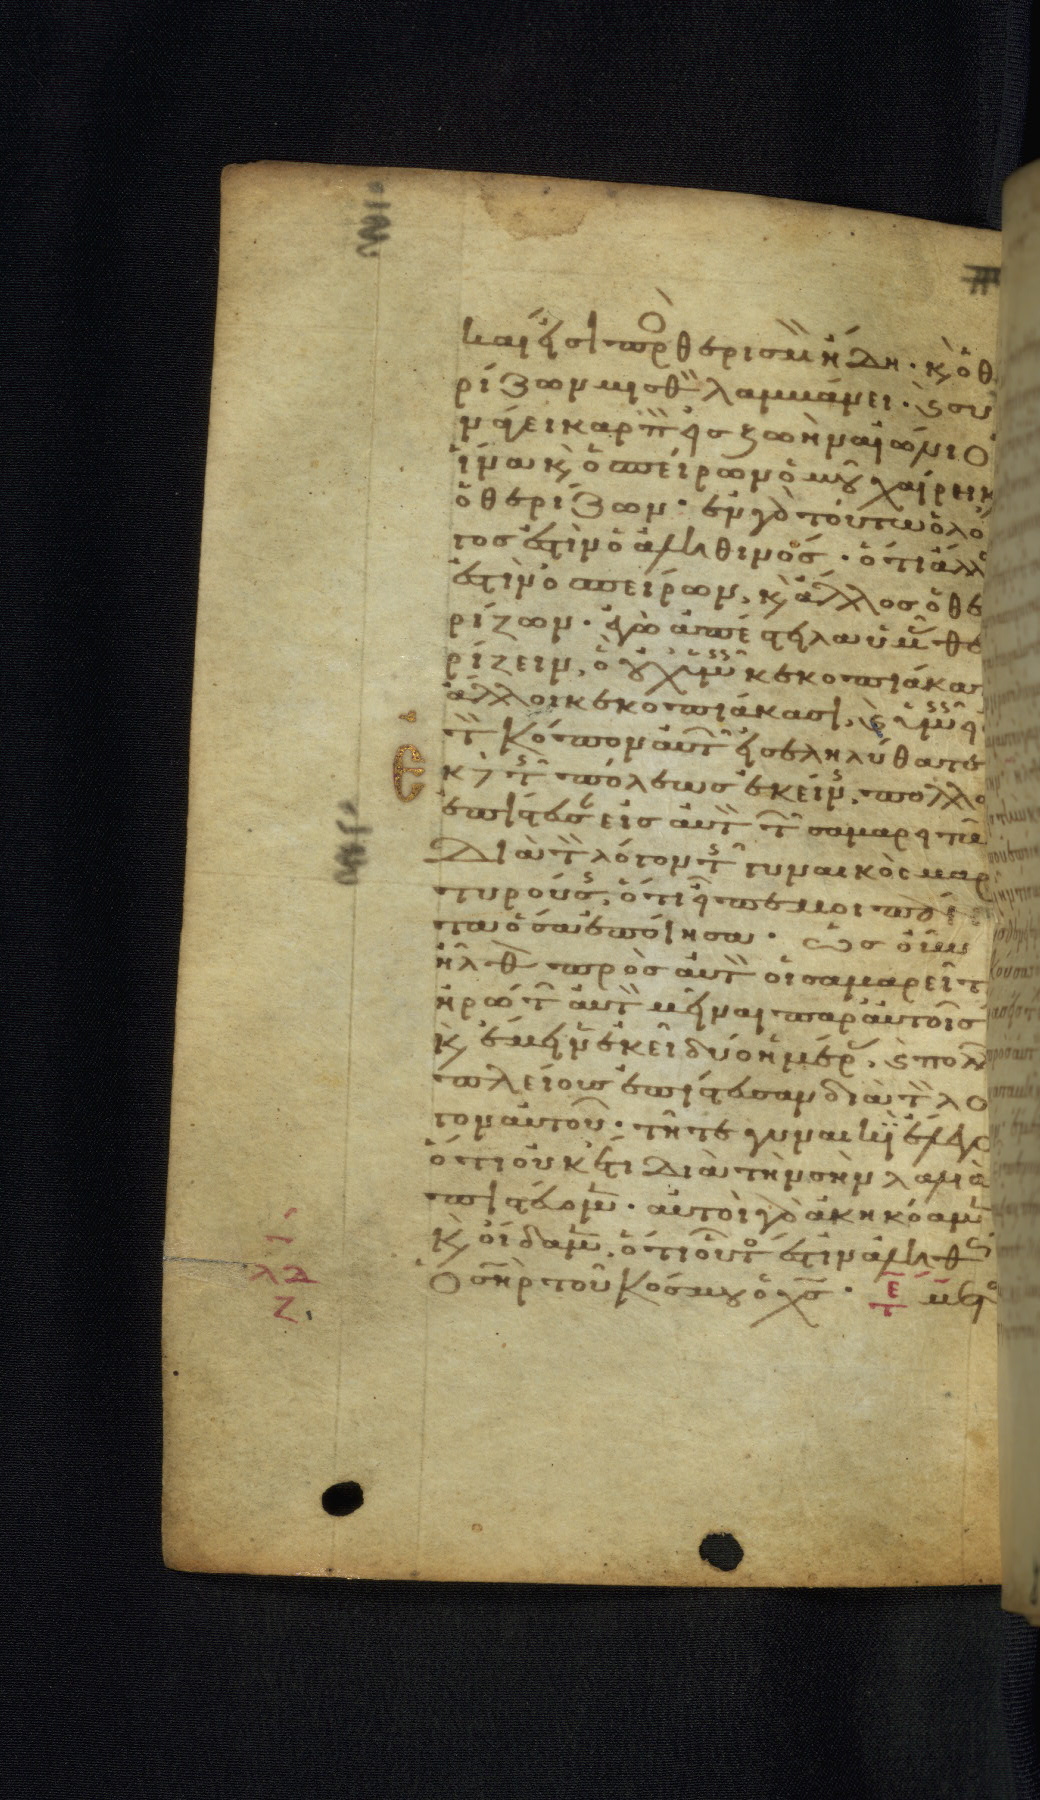 καί εἰσι πρ θερισμ ἤδη· κ ὁ θε
ρίζων μισθ λαμμάνει· κ συ
νάγει καρπ εἰσ ζωὴν αἰώνιο
ἵνα κ ὁ σπείρων ὁμοῦ χαίρη κ
ὁ θερίζων· ἐν γὰρ τούτω ὁ λό
γοσ ἐστὶν ὁ ἀληθινόσ· ὅτι ἄλλο
ἐστὶν ὁ σπείρων, κ ἄλλοσ ὁ θε
ρίζων· ἐγὼ ἀπέστειλα ὑμ θε
ρίζειν, ὃ οὐχ ὑμεῖς κεκοπιάκατ
ἄλλοι κεκοπιάκασι, κ ὑμεῖς εἰ
τ κόπον αὐτ εἰσεληλύθατε
Ε κ τ πόλεωσ ἐκείν, πολλο
ἐπίστευσ εἰσ αὐτ τ σαμαρειτ
Διὰ τ λόγον τ γυναικὸσ μαρ
τυρούσ, ὅτι εἶπε μοι πά
τα ὅσα ἐποίησα· ὡσ οὖν
ἦλθ πρὸσ αὐτ οἱ σαμαρεῖτ
ἠρώτ αὐτ μεῖναι παρ αὐτοῖσ
κ ἔμειν ἐκεῖ δύο ἡμέρ, κ πολλ
πλείουσ ἐπίστευσαν διὰ τ λο
γον αὐτοῦ· τῆ τε γυναικὶ ἔλεγο
ὅτι οὐκέτι Διὰ τὴν σὴν λαλιὰ
πιστεύομ· αὐτοὶ γὰρ ἀκηκόαμ
κ οἴδαμ, ὅτι οὗτ ἐστιν ἀληθ
Ὁ σηρ τοῦ κόσμου ὁ χσ·